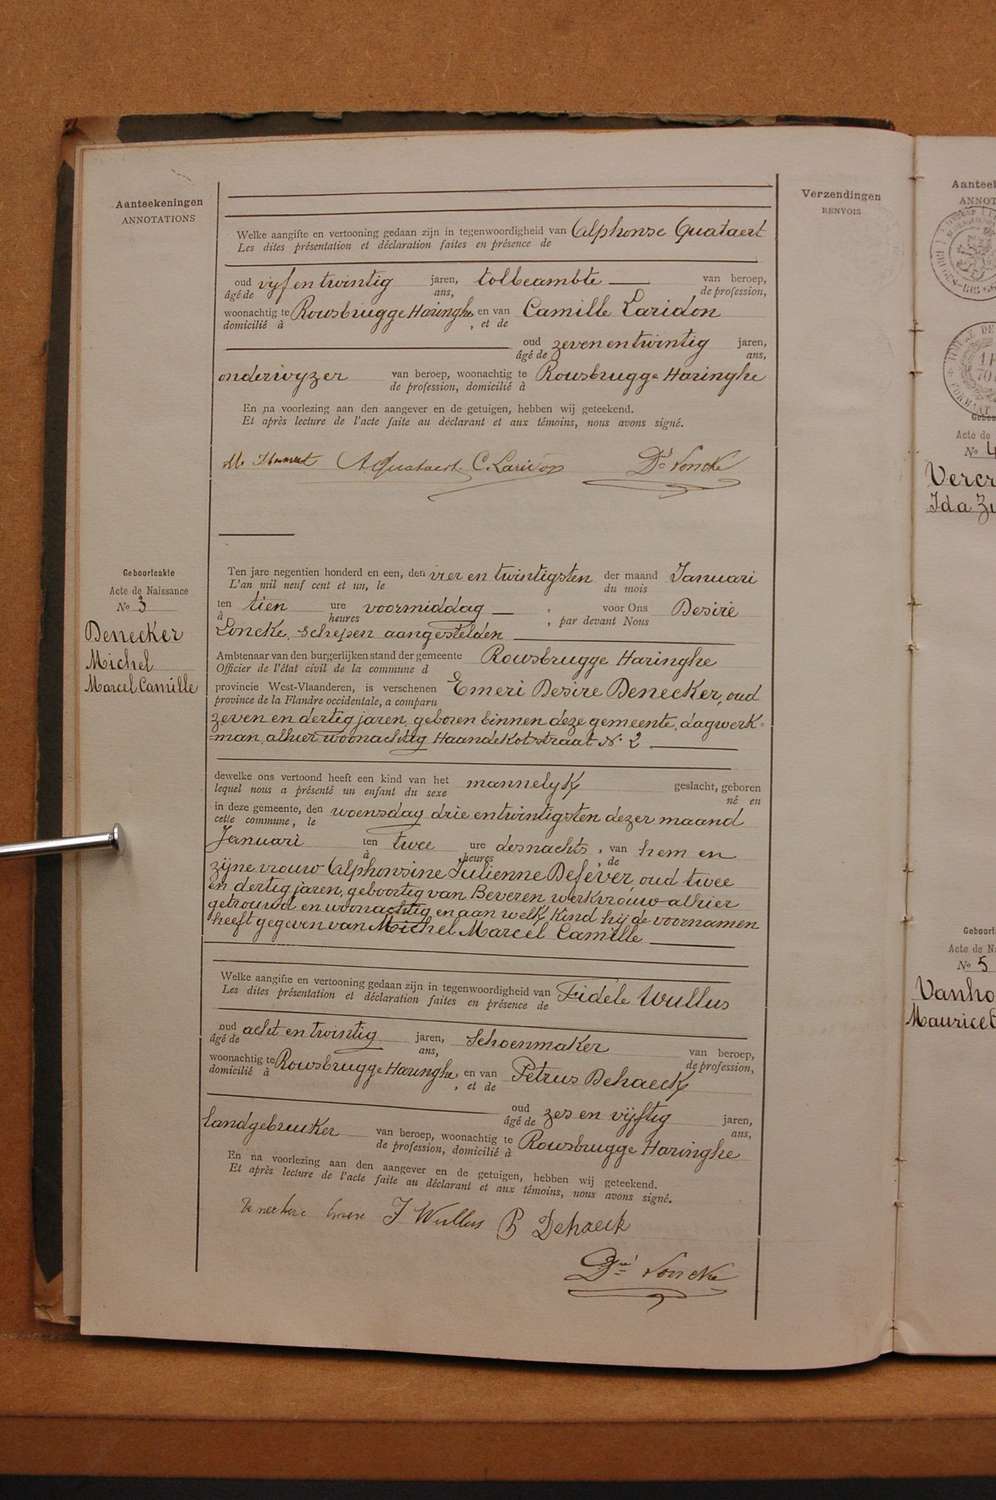 Aanteekeningen
ANNOTATIONS
Verzendingen
RENVOIS
Welke aangifte en vertooning gedaan zijn in tegenwoordigheid van Alphonse Quataert
Les dites présentation et déclaration faites en présence de
oud vijf en twintig jaren, tolbeambte van beroep,
âgé de ans, de profession,
woonachtig te Rousbrugge Haringhe en van Camille Laridon
domicilié à , et de
oud zeven en twintig jaren,
âgé de ans,
onderwyzer van beroep, woonachtig te Rousbrugge Haringhe
de profession, domicilié à
En na voorlezing aan den aangever en de getuigen, hebben wij geteekend.
Et après lecture de l'acte faite au déclarant et aux témoins, nous avons signé.
A Quataert C. Laridon Dé Loncke
Geboorteakte
Acte de Naissance
No 3
Denecker
Michel
Marcel Camille
Ten jare negentien honderd en een, den vier en twintigsten der maand Januari
L'an mil neuf cent et un, le du mois
ten tien ure voormiddag , voor Ons Desiré
à heures , par devant Nous
Loncke, schepen aangestelden
Ambtenaar van den burgerlijken stand der gemeente Rousbrugge Haringhe
Officier de l'état civil de la commune d
provincie West-Vlaanderen, is verschenen Emeri Desire Denecker, oud
province de la Flandre occidentale, a comparu
zeven en dertig jaren, geboren binnen deze gemeente, dagwerk=
=man, alhier woonachtig Haandekotstraat No 2
dewelke ons vertoond heeft een kind van het mannelyk geslacht, geboren
lequel nous a présenté un enfant du sexe né en
in deze gemeente, den woensdag drie en twintigsten dezer maand
cette commune, le
Januari ten twee ure des nachts , van hem en
à heures , de
zijne vrouw Alphonsine Julienne Defever, oud twee
en dertig jaren, geboortig van Beveren, werkvrouw alhier
getrouwd en woonachtig en aan welk kind hij de voornamen
heeft gegeven van Michel Marcel Camille
Welke aangifte en vertooning gedaan zijn in tegenwoordigheid van Fidele Wullus
Les dites présentation et déclaration faites en présence de
oud acht en twintig jaren, Schoenmaker van beroep,
âgé de ans, de profession,
woonachtig te Rousbrugge Haringhe en van Petrus Dehaeck
domicilié à , et de
oud zes en vijftig jaren,
âgé de ans,
landgebruiker van beroep, woonachtig te Rousbrugge Haringhe
de profession, domicilié à
En na voorlezing aan den aangever en de getuigen, hebben wij geteekend.
Et après lecture de l'acte faite au déclarant et aux témoins, nous avons signé.
F Wullus P Dehaeck
Dé Loncke
Acte de
No 4
Vercr
Ida
Acte de Na
No 5
Vanho
Maurice